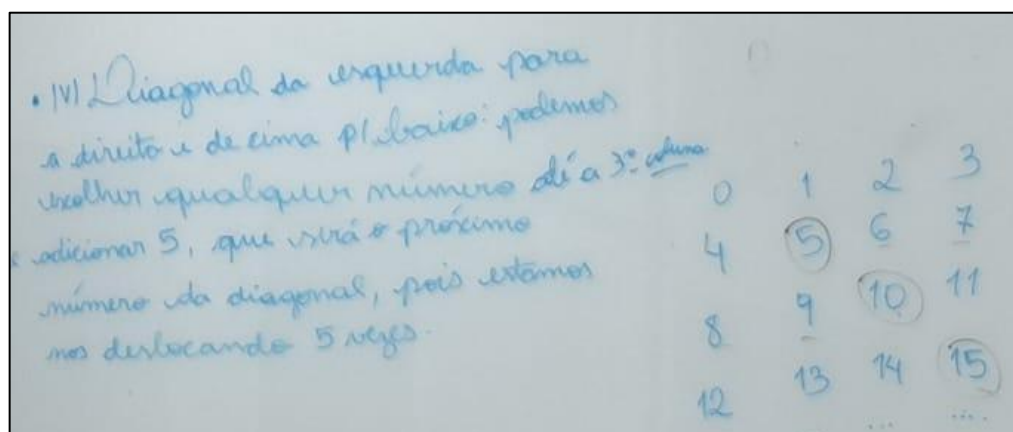 • IV) Diagonal da esquerda para
a direita e de cima p/ baixo: podemos
escolher qualquer número até a 3ª coluna
e adicionar 5, que será o próximo
número da diagonal, pois estamos
nos deslocando 5 vezes.
0 1 2 3
4 5 6 7
8 9 10 11
12 13 14 15
... ....